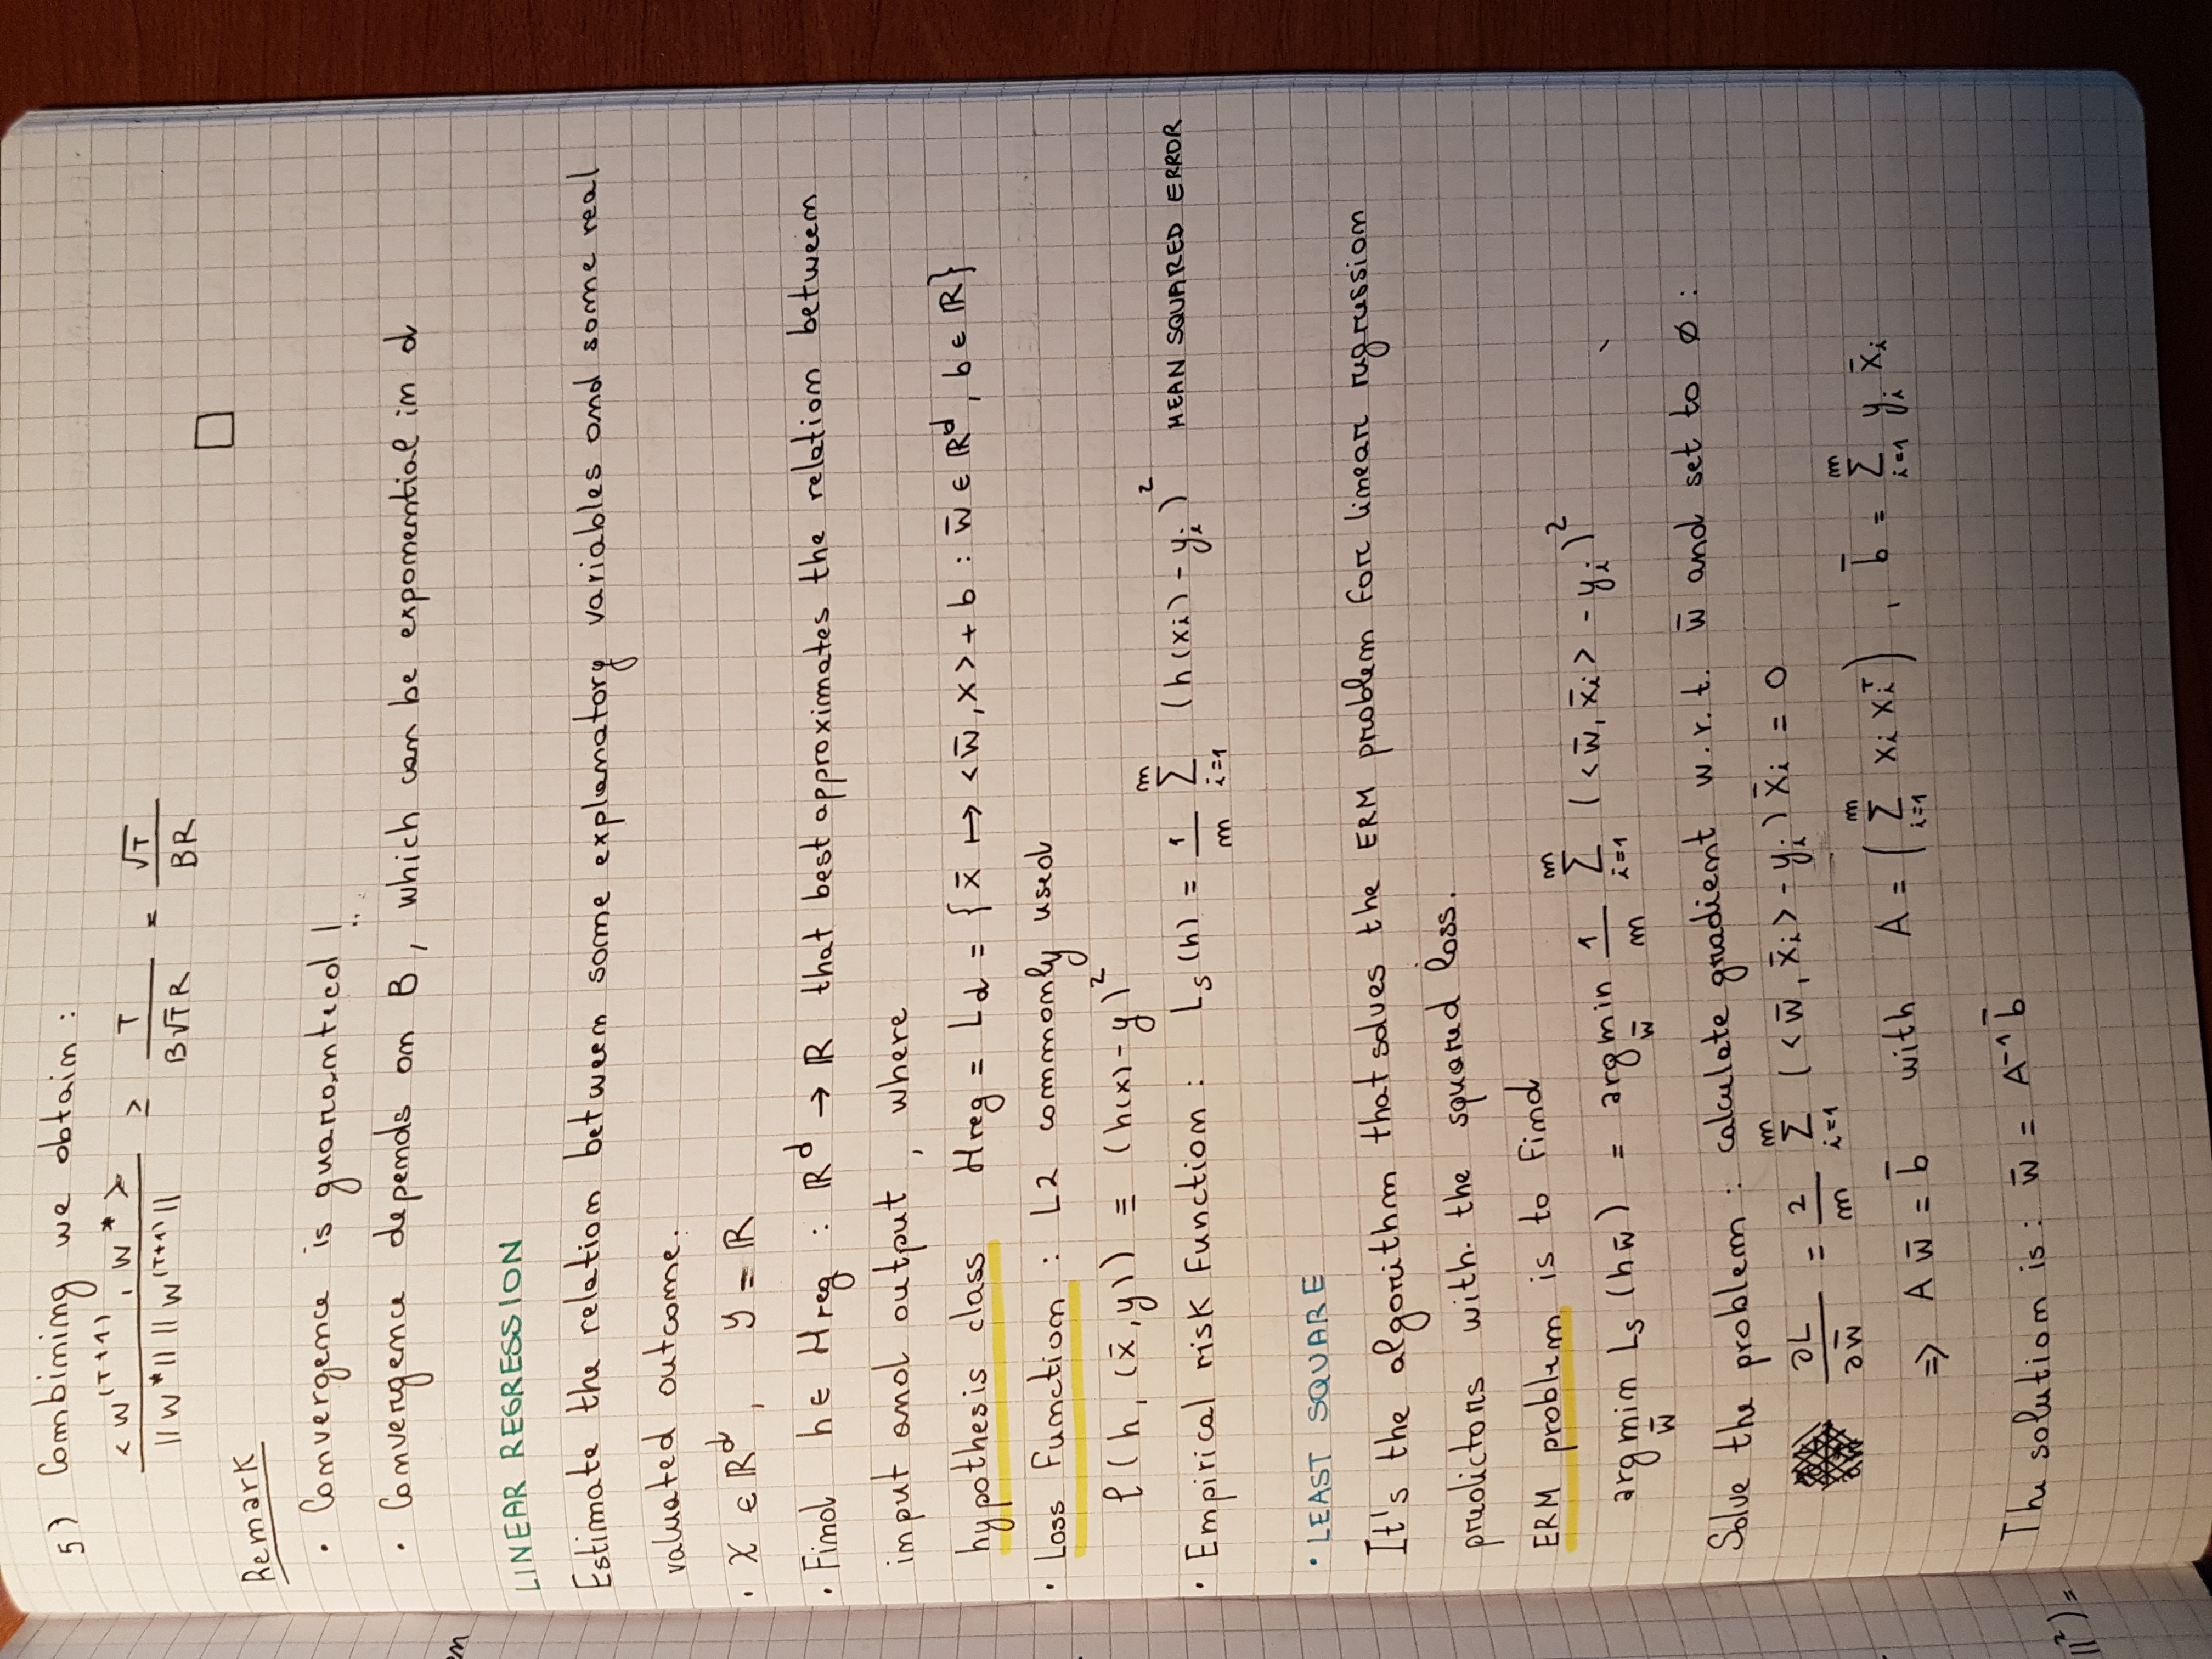 5) Combining we obtain :
<w^(T+1), w*> / ||w*|| ||w^(T+1)|| ≥ T / B√T R = √T / BR
□
Remark
• Convergence is guaranteed !
• Convergence depends on B, which can be exponential in d
en
LINEAR REGRESSION
Estimate the relation between some explanatory variables and some real
valuated outcome.
• X ∈ ℝ^d, Y = ℝ
• Find h ∈ Hreg : ℝ^d → ℝ that best approximates the relation between
input and output, where
hypothesis class Hreg = L_d = { x̄ ↦ <w̄, x> + b : w̄ ∈ ℝ^d, b ∈ ℝ}
• Loss function : L2 commonly used
ℓ(h, (x̄, y)) ≡ (h(x) - y)^2
• Empirical risk function : L_S(h) = 1/m Σ_{i=1}^m (h(x_i) - y_i)^2 MEAN SQUARED ERROR
• LEAST SQUARE
It's the algorithm that solves the ERM problem for linear regression
predictors with. the squared loss.
ERM problem is to find
argmin_w̄ L_S (h_w̄) = argmin_w̄ 1/m Σ_{i=1}^m (<w̄, x̄_i> - y_i)^2
Solve the problem : calculate gradient w.r.t. w̄ and set to ∅ :
∂L/∂w̄ = 2/m Σ_{i=1}^m (<w̄, x̄_i> - y_i) x̄_i = 0
⇒ A w̄ = b̄ with A = (Σ_{i=1}^m x_i x_i^T), b̄ = Σ_{i=1}^m y_i x̄_i
The solution is : w̄ = A^-1 b̄
||^2) =